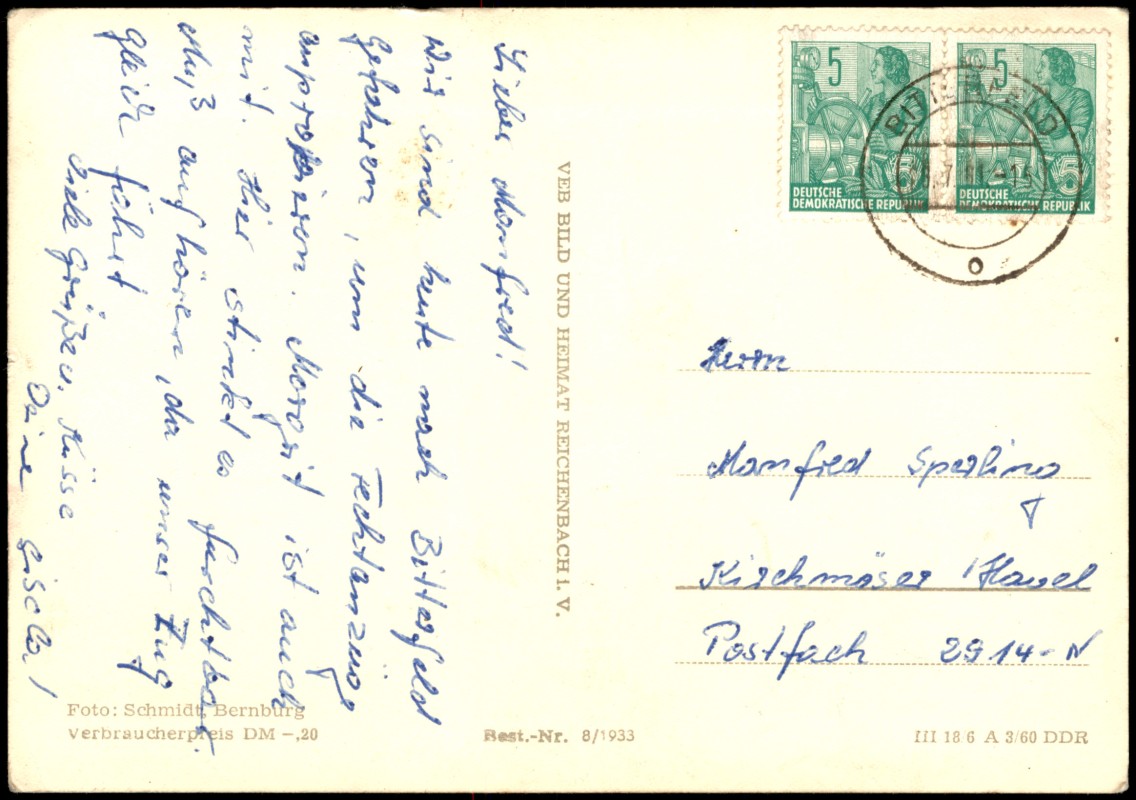 Lieber Manfred!
Wir sind heute nach Bitterfeld
gefahren, um die Fechtanzüge
anprobieren. Margit ist auch
mit. Hier stinkt es furchtbar.
Muß aufhören, da unser Zug
gleich fährt
Viele Grüße u. Küsse
Deine Gisela!
VEB BILD UND HEIMAT REICHENBACH i. V.
Foto: Schmidt, Bernburg
Verbraucherpreis DM -,20
Best.-Nr. 8/1933
5
DEUTSCHE
DEMOKRATISCHE REPUBLIK
5
5
DEUTSCHE
DEMOKRATISCHE REPUBLIK
5
BITTERFELD
Herrn
Manfred Sperling
Kirchmöser /Havel
Postfach 2914-N
III 18 6 A 3/60 DDR